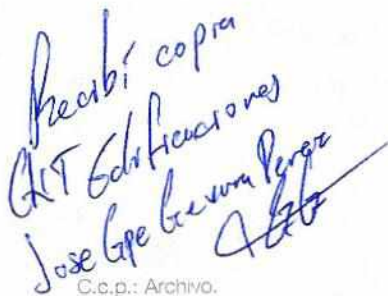 Recibí copia
Edificaciones
Jose Gpe Perez
C.c.p.: Archivo.